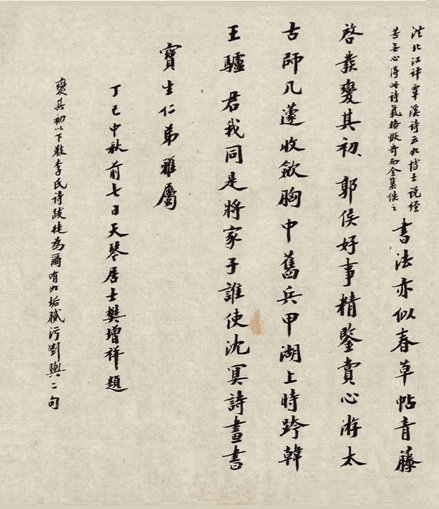 洪北江評覃溪詩云如博士說經
苦無心得此詩氣格傲奇而全集佚之
書法亦似春草帖青藤
啓發變其初郭侯好事精鑒賞心游太
古師几蘧收斂胸中舊兵甲湖上時跨韓
王驢君我同是將家子誰使沈冥詩畫書
寶生仁弟雅屬
丁巳中秋前七日天琴居士樊增祥題
變其初以下敚李氏詩跋徒為爾有如垢膩污劉輿二句